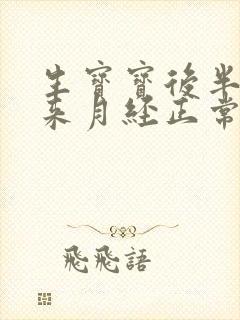 生寶寶後半
來月經正常
飛飛語